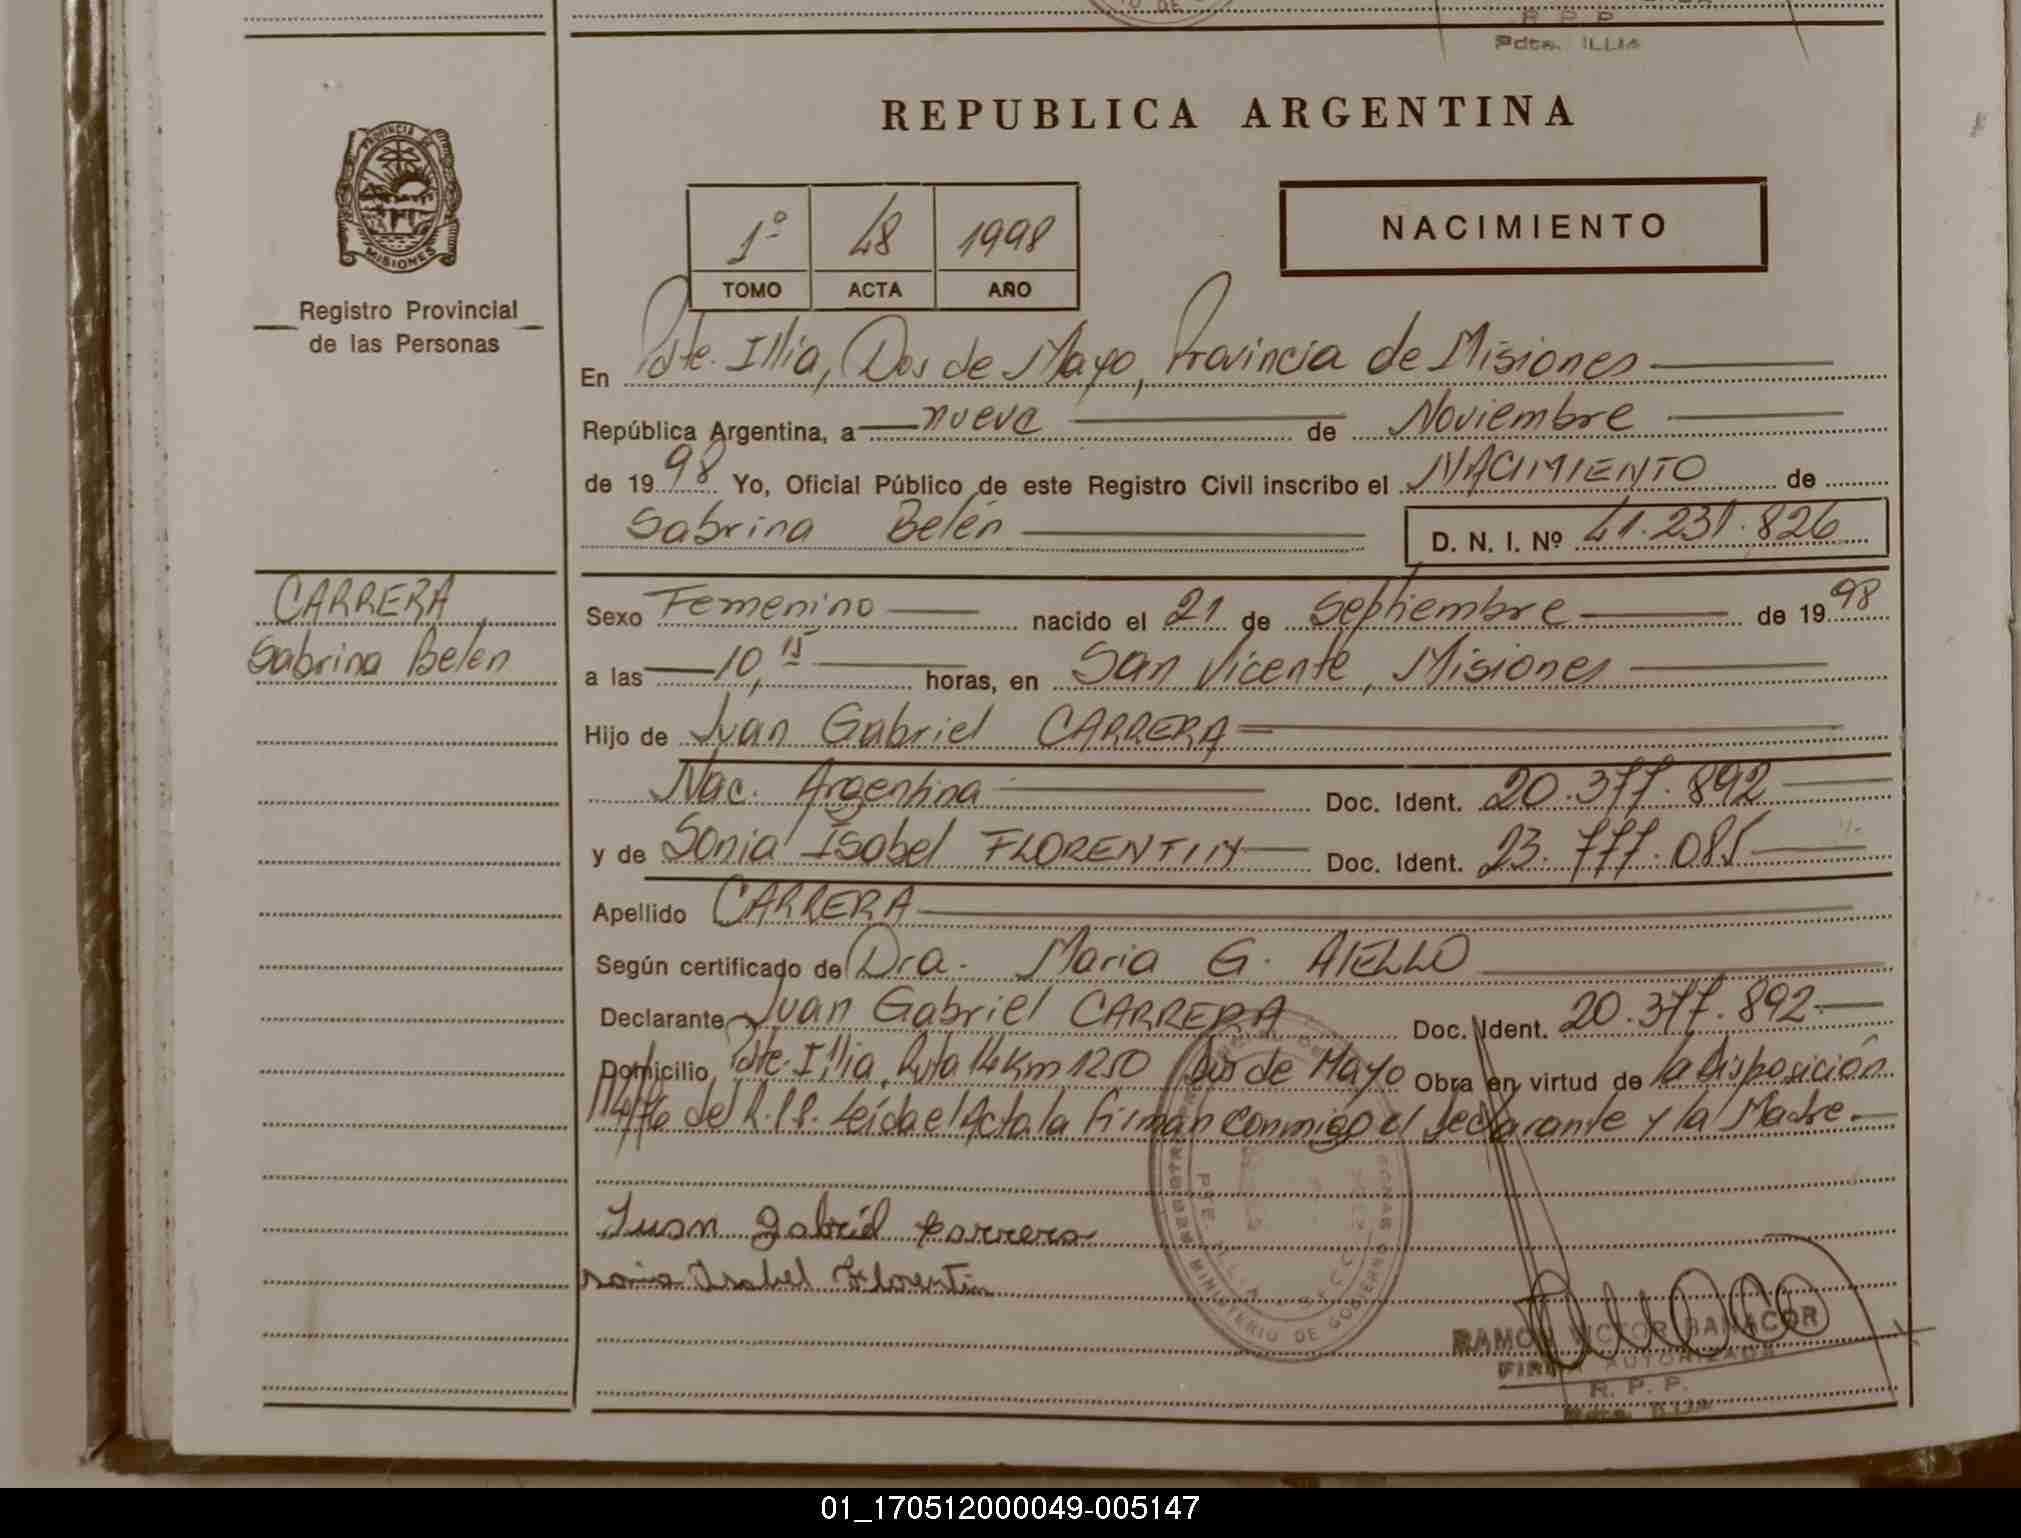 R. P. P.
Pdte. ILLIA
REPUBLICA ARGENTINA
PROVINCIA DE
MISIONES
Registro Provincial
de las Personas
1º 48 1998
TOMO ACTA AÑO
NACIMIENTO
En Pdte. Illia, Dos de Mayo, Provincia de Misiones
República Argentina, a nueve de Noviembre
de 1998 Yo, Oficial Público de este Registro Civil inscribo el NACIMIENTO de
Sabrina Belén D. N. I. Nº 41.231.826
CARRERA
Sabrina Belén
Sexo Femenino nacido el 21 de Septiembre de 1998
a las 10,15 horas, en San Vicente, Misiones
Hijo de Juan Gabriel CARRERA
Nac. Argentina Doc. Ident. 20.377.892
y de Sonia Isabel FLORENTIN Doc. Ident. 23.777.085
Apellido CARRERA
Según certificado de Dra. Maria G. AIELLO
Declarante Juan Gabriel CARRERA Doc. Ident. 20.377.892
Domicilio Pdte. Illia, Ruta 14 Km 1250 Dos de Mayo Obra en virtud de la disposición
114/76 del R.P.P. Leída el Acta la firman conmigo el declarante y la Madre.
Juan Gabriel Carrera
Sonia Isabel Florentin
MINISTERIO DE GOBIERNO
PTE. ILLIA
RAMON VICTOR
FIRMA AUTORIZADA
R. P. P.
Pdte. ILLIA
01_170512000049-005147